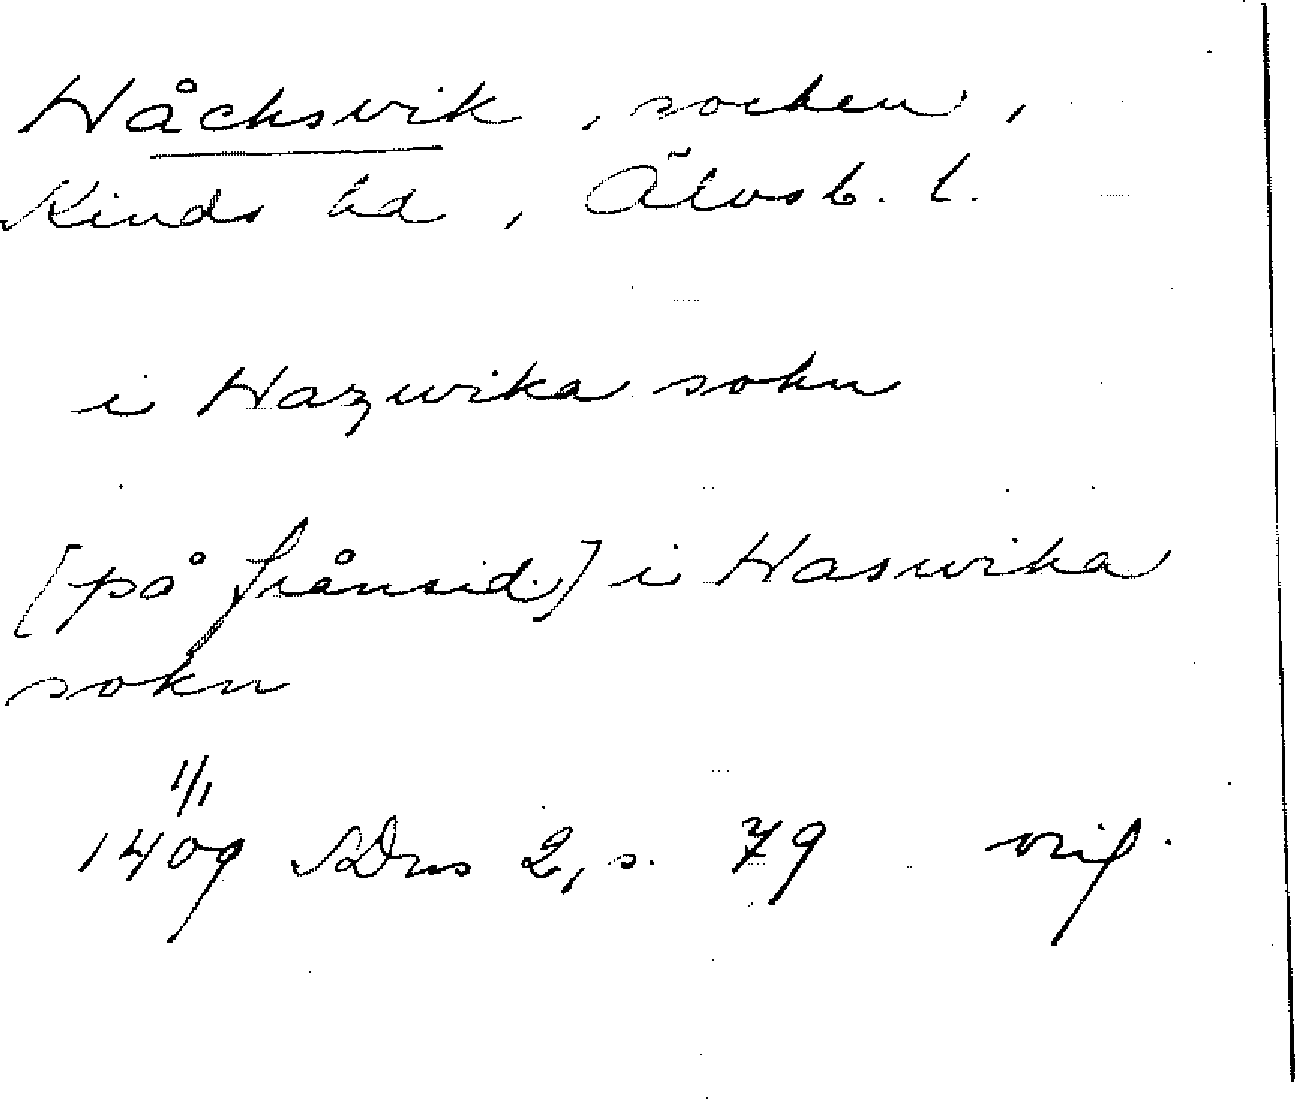 Håcksvik, socken,
Kinds hd, Älvsb. l.
i Hazwika sokn
[på frånsid.] i Haswika
sokn
1/1
1409 SDns 2, s. 79 orig.